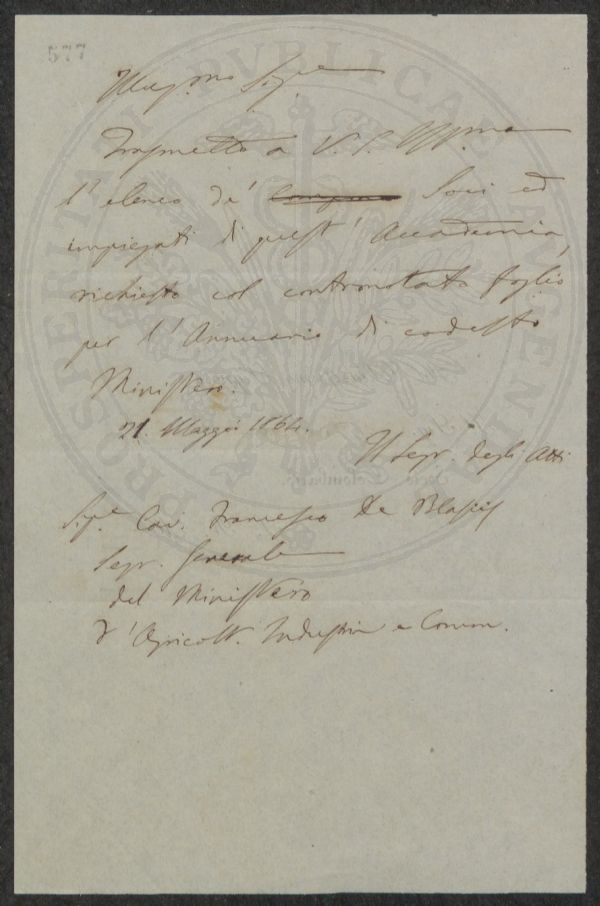 577
Illus.mo Sig.re
Trasmetto a V. S. Ill.ma
l'elenco de' Soci ed
impiegati di quest' Accademia,
richiesto col contronotato foglio
per l'Annuario di codesto
Ministero.
21. Maggio 1864.
Il Segr. degli Atti
Sig.r Cav. Francesco De Blasiis
Segr. Generale
del Ministero
d'Agricolt. Industria e Comm.
PROSPERITATI PVBLICAE AVGENDAE